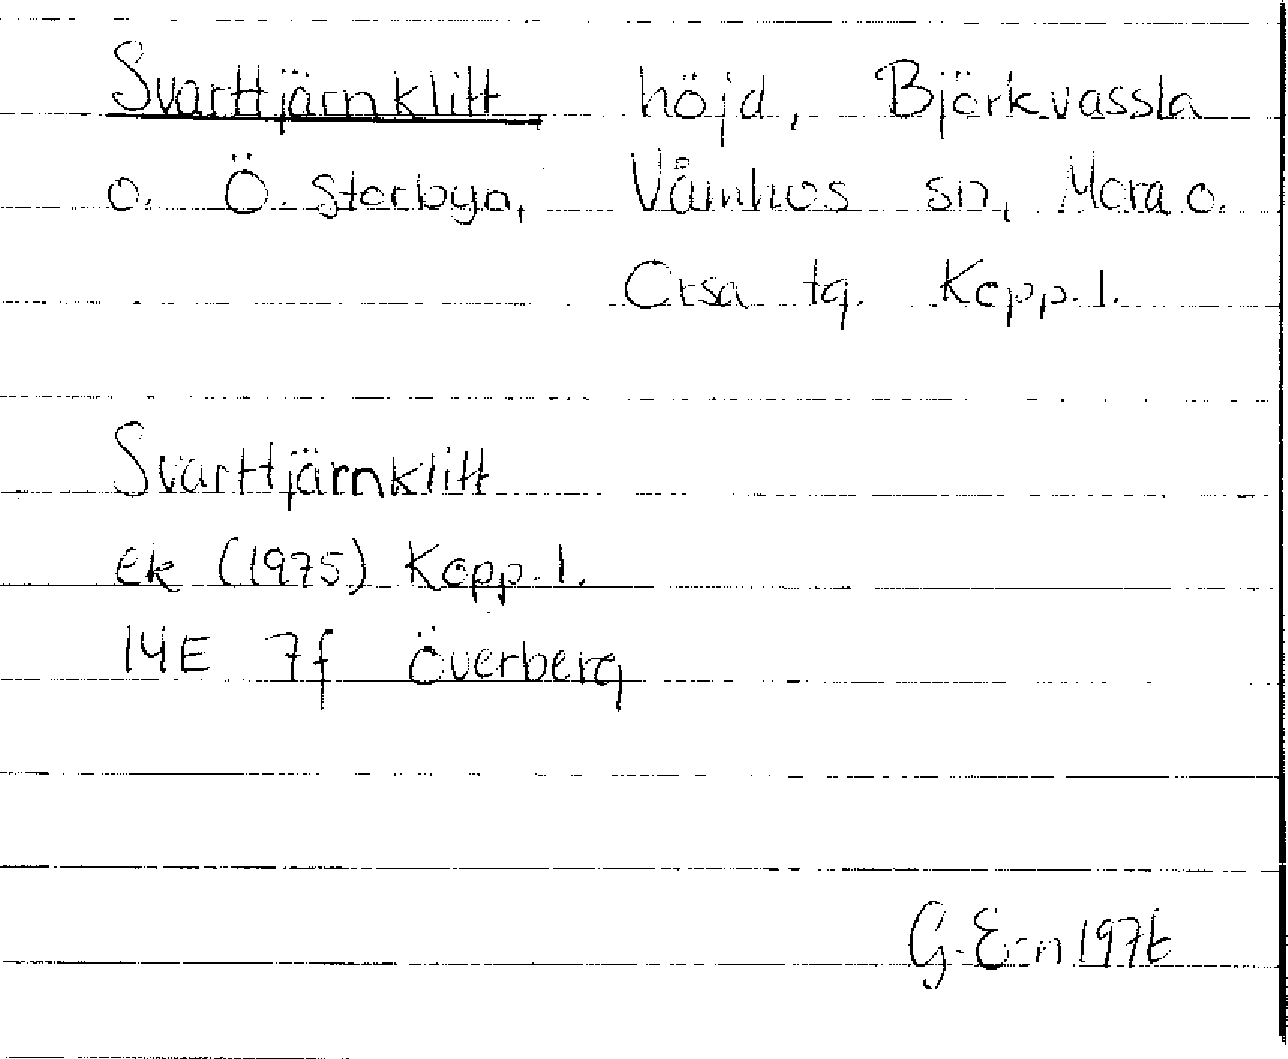 Svarttjärnklitt höjd, Björkvassla
o. Ö. Storbyn, Våmhus sn, Mora o.
Orsa tg. Kopp. l.
Svarttjärnklitt
ek (1975) Kopp. l.
14E 7f Överberg
G. E:n 1976